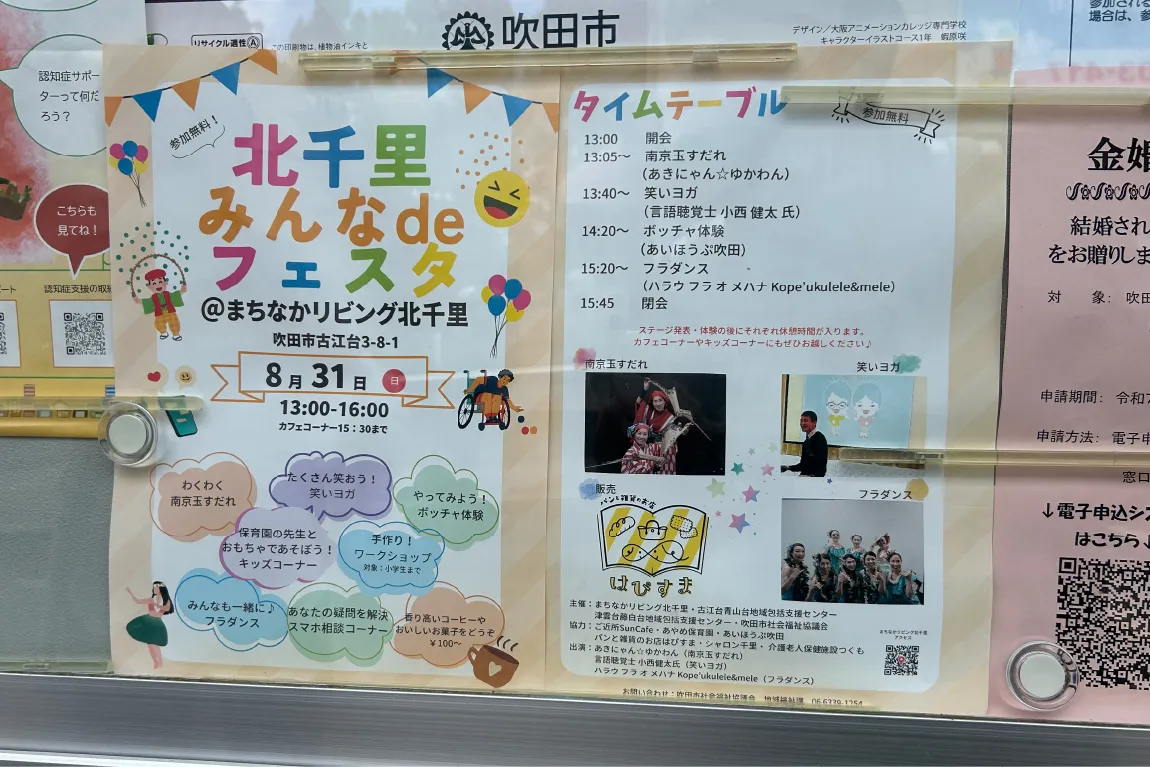 リサイクル適性Ⓐ
この印刷物は、植物油インキと
吹田市
デザイン/大阪アニメーションカレッジ専門学校
キャラクターイラストコース1年
認知症サポー
ターって何だ
ろう?
こちらも
見てね!
認知症支援の取組
参加無料!
北千里
みんなde
フェスタ
@まちなかリビング北千里
吹田市古江台3-8-1
8月31日 日
13:00-16:00
カフェコーナー15:30まで
わくわく
南京玉すだれ
たくさん笑おう!
笑いヨガ
やってみよう!
ボッチャ体験
保育園の先生と
おもちゃであそぼう!
キッズコーナー
手作り!
ワークショップ
対象:小学生まで
みんなも一緒に♪
フラダンス
あなたの疑問を解決
スマホ相談コーナー
香り高いコーヒーや
おいしいお菓子をどうぞ
¥100~
タイムテーブル
参加無料
13:00 開会
13:05~ 南京玉すだれ
(あきにゃん☆ゆかわん)
13:40~ 笑いヨガ
(言語聴覚士 小西 健太 氏)
14:20~ ボッチャ体験
(あいほうぷ吹田)
15:20~ フラダンス
(ハラウ フラ オ メハナ Kope'ukulele&mele)
15:45 閉会
ステージ発表・体験の後にそれぞれ休憩時間が入ります。
カフェコーナーやキッズコーナーにもぜひお越しください♪
南京玉すだれ
笑いヨガ
販売
パンと雑貨のお店
はぴすま
フラダンス
主催:まちなかリビング北千里・古江台青山台地域包括支援センター
津雲台藤白台地域包括支援センター・吹田市社会福祉協議会
協力:ご近所SunCafe・あやめ保育園・あいほうぷ吹田
パンと雑貨のお店はぴすま・シャロン千里・介護老人保健施設つくも
出演:あきにゃん☆ゆかわん(南京玉すだれ)
言語聴覚士 小西健太氏(笑いヨガ)
ハラウ フラ オ メハナ Kope'ukulele&mele(フラダンス)
まちなかリビング北千里
アクセス
お問い合わせ:吹田市社会福祉協議会 地域福祉課 06-6339-1254
金婚
結婚され
をお贈りしま
対 象: 吹田
申請期間: 令和7
申請方法: 電子申
窓口
↓電子申込シス
はこちら↓